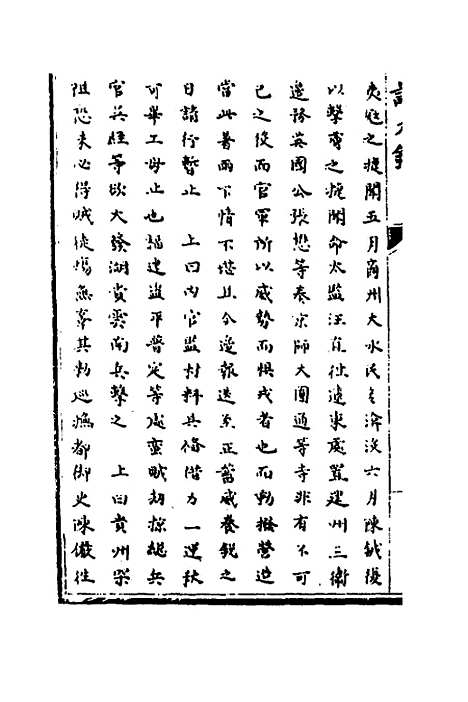 夷虜之捷聞五月商州大水民多渰沒六月陳鉞復
以擊虜之捷聞命太監汪直往遼東處置建州三衛
邊務英國公張懋等奏京師大圓通等寺非有不可
已之役而官軍所以威勢而懼戎者也而動撥營造
當此暑雨下情不堪且今邊報迭至正蓄威養銳之
日請行暫止　上曰內官監材料具備借力一運秋
可畢工毋止也福建盜平普定等處蠻賊劫掠總兵
官吳經等欲大發湖貴雲南兵擊之　上曰貴州深
阻恐未必得賊徒傷無辜其勑巡撫都御史陳儼往